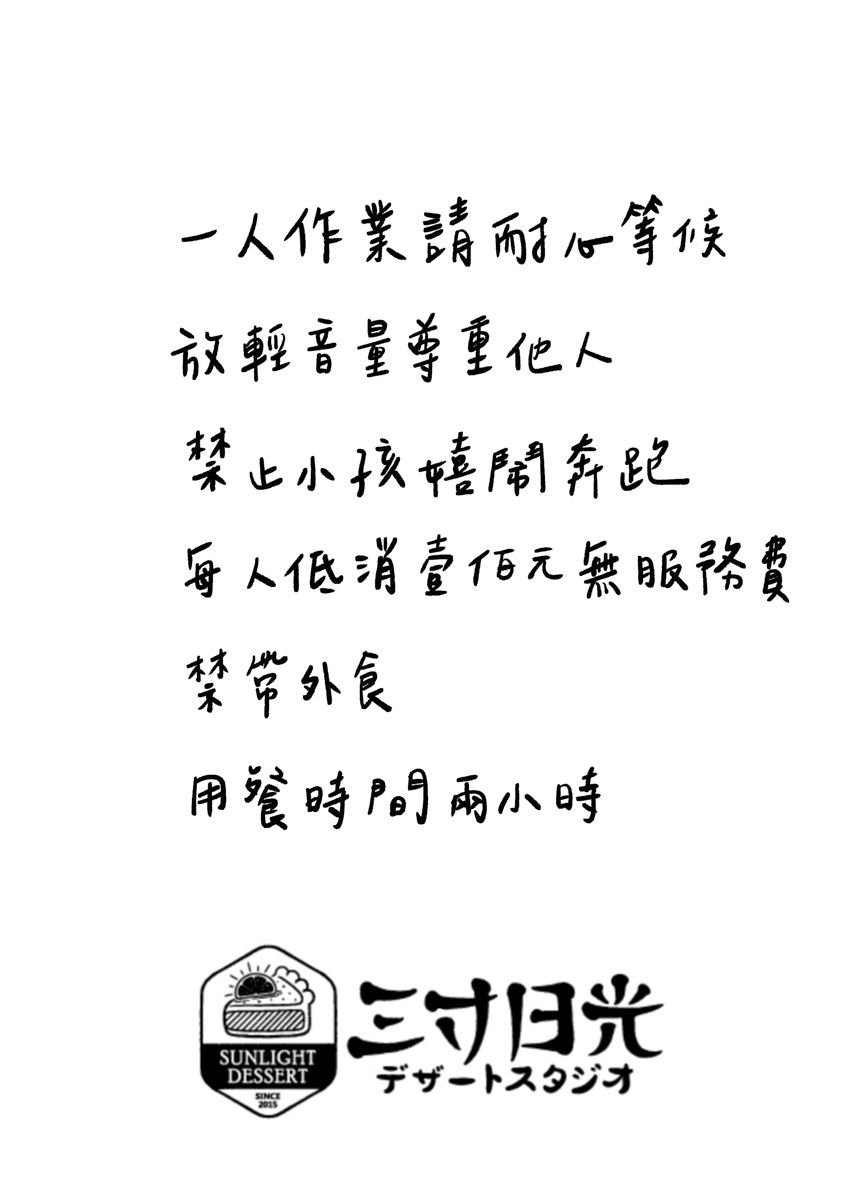 一人作業請耐心等候
放輕音量尊重他人
禁止小孩嬉鬧奔跑
每人低消壹佰元無服務費
禁帶外食
用餐時間兩小時
三寸日光
デザートスタジオ
SUNLIGHT
DESSERT
SINCE
2015